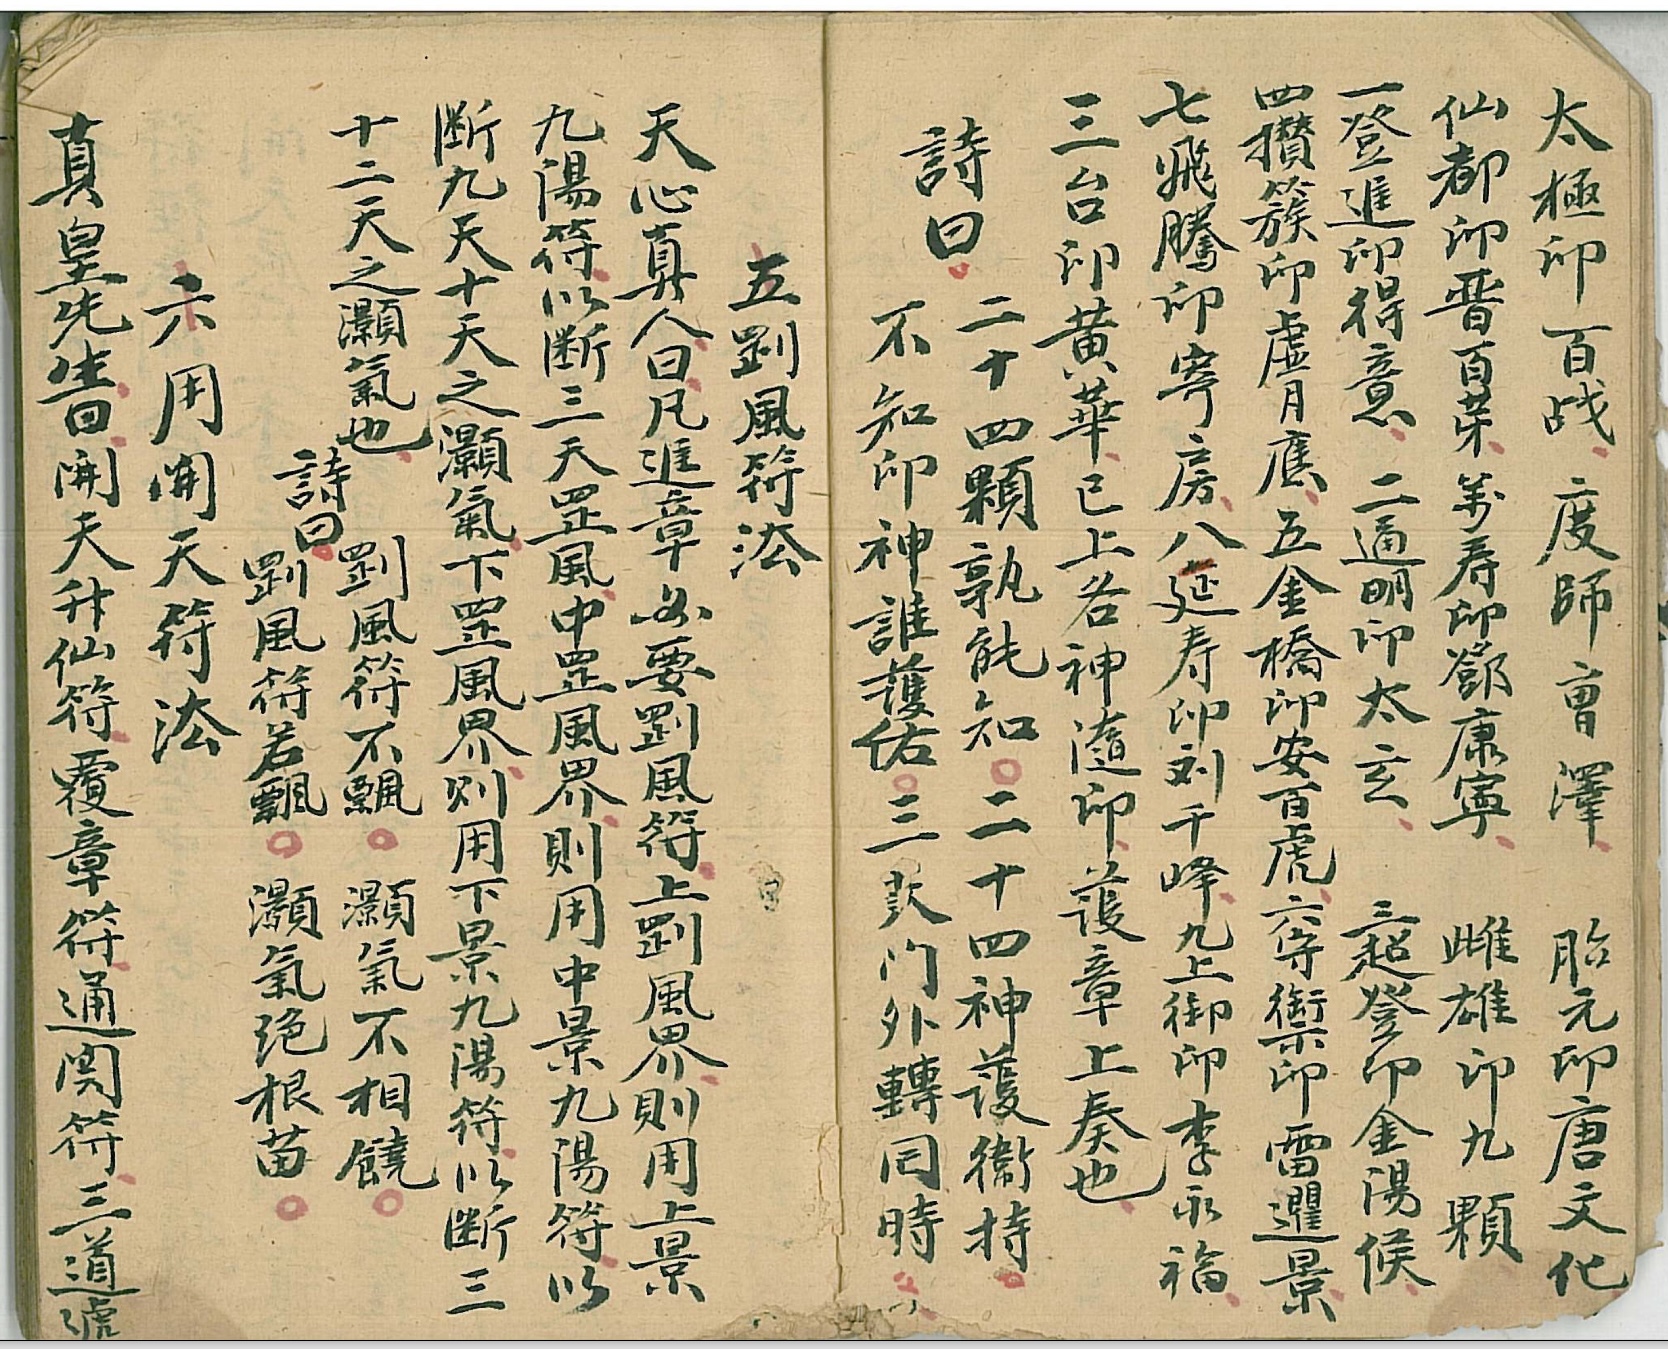 太極印百战、度師曾澤、胎元印唐文化
仙都印晋百荣、萬寿印鄧康寧、雌雄印九顆
一登進印得意、二通明印太玄、三超登印金湯候、
四攅簇印虚月應、五金橋印安百虎、六守禦印雷暹景、
七飛騰印寄房、八延寿印刘千峰、九上御印李永福、
三台印黄華、已上各神隨印、護章上奏也、
詩曰、
二十四顆孰能知○二十四神護衛持。
不知印神誰護佑○三鼓门外轉同時
五劉風符法
天心真人曰、凡進章必要劉風符、上劉風界、則用上景
九陽符、以断三天罡風、中罡風界、則用中景九陽符、以
断九天十天之灝氣、下罡風界、则用下景九陽符、以断三
十二天之灝氣也、
詩曰、
劉風符不飄○灝氣不相饒○
劉風符若飄○灝氣绝根苗○
六用開天符法
真皇先生曰、開天升仙符、覆章符、通関符、三道號